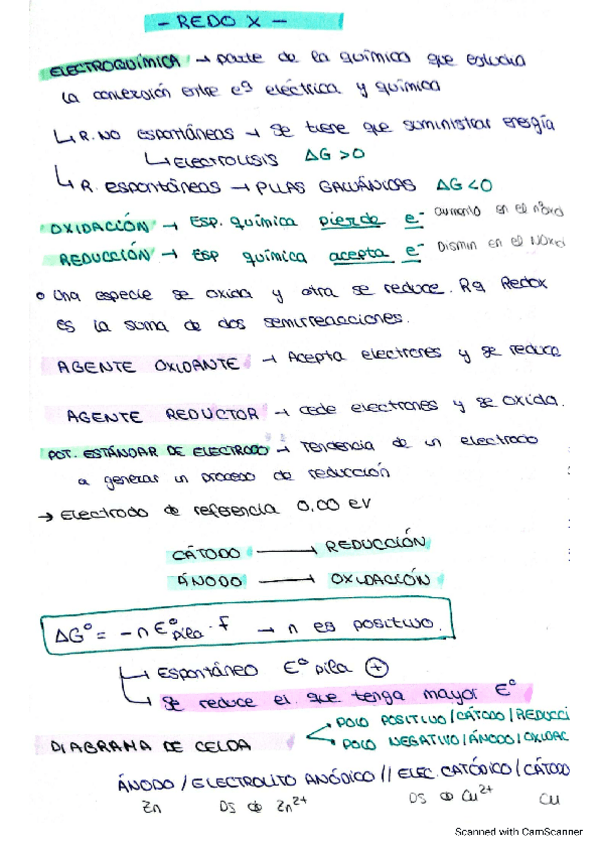 - REDOX -
ELECTROQUÍMICA → parte de la química que estudia
la conversión entre eª eléctrica y química
↳ R. NO ESPONTÁNEAS → Se tiene que suministrar energía
↳ ELECTROLISIS ΔG > 0
↳ R. espontáneas → PILAS GALVÁNICAS ΔG < 0
OXIDACCIÓN → ESP. química pierde e⁻ aumento en el nºoxi
REDUCCIÓN → ESP química acepta e⁻ Dismin en el Nºoxi
o Una especie se oxida y otra se reduce. Rq Redox
es la suma de dos semirreaciones.
AGENTE OXIDANTE → Acepta electrones y se reduce
AGENTE REDUCTOR → cede electrones y se oxida.
POT. ESTÁNDAR DE ELECTRODO → Tendencia de un electrodo
a generar un proceso de reducción
→ Electrodo de referencia 0,00 eV
CÁTODO → REDUCCIÓN
ÁNODO → OXIDACCIÓN
ΔGº = -n Eºpila · f → n es positivo.
↳ Espontáneo Eº pila ⊕
↳ Se reduce el que tenga mayor Eº
DIAGRAMA DE CELDA
POLO POSITIVO / CÁTODO / REDUCCI
POLO NEGATIVO / ÁNODO / OXIDAC
ÁNODO / ELECTROLITO ANÓDICO // ELEC. CATÓDICO / CÁTODO
Zn DS de Zn²⁺ DS de Cu²⁺ Cu
Scanned with CamScanner